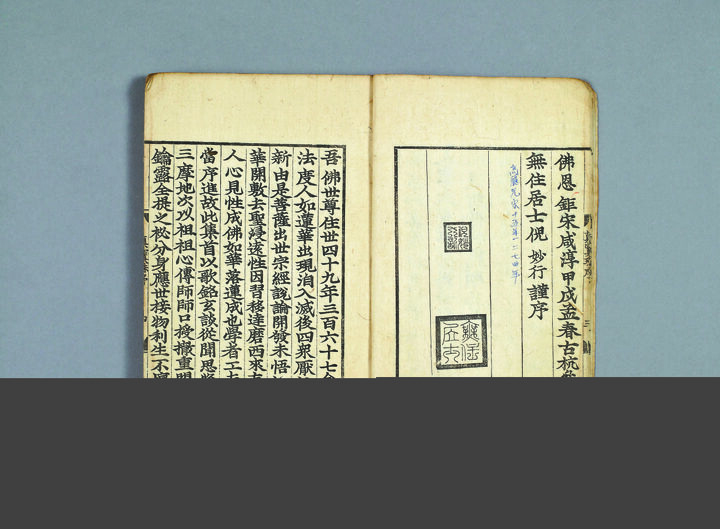 佛恩 鉅宋咸淳甲戌孟春古杭
無住居士倪 妙行 謹序
高麗元宗十五年一二七四年
無住居士
吾佛世尊住世四十九年三百六十七
法度人如蓮華出現洎入滅後四衆厭
新由是菩薩出世宗經說論開發未悟
華開敷去聖浸遠性因習移達磨西來
人心見性成佛如華落蓮成也學者工
當序進故此集首以歌銘玄談從聞思
三摩地次以祖祖心傳師師口授撮重
鑰 全提之 分身應世接物利生不